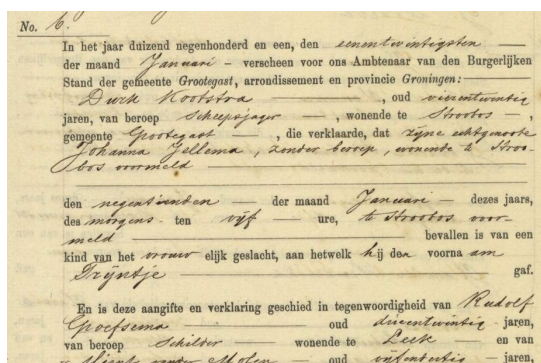 No. 6.
In het jaar duizend negenhonderd en een, den eenentwintigsten
der maand Januari - verscheen voor ons Ambtenaar van den Burgerlijken
Stand der gemeente Grootegast, arrondissement en provincie Groningen:
Durk Kootstra, oud vierentwintig
jaren, van beroep Scheepsjager, wonende te Stroobos,
gemeente Grootegast, die verklaarde, dat zijne echtgenoote
Johanna Jellema, zonder beroep, wonende te Stroo-
bos voormeld
den negentienden der maand Januari dezes jaars,
des morgens ten vijf ure, te Stroobos voor-
meld bevallen is van een
kind van het vrouwelijk geslacht, aan hetwelk hij den voornaam
Trijntje gaf.
En is deze aangifte en verklaring geschied in tegenwoordigheid van Rudolf
Groefsema oud drieentwintig jaren,
van beroep Schilder wonende te Leek en van
van der Molen oud vijfendertig jaren,